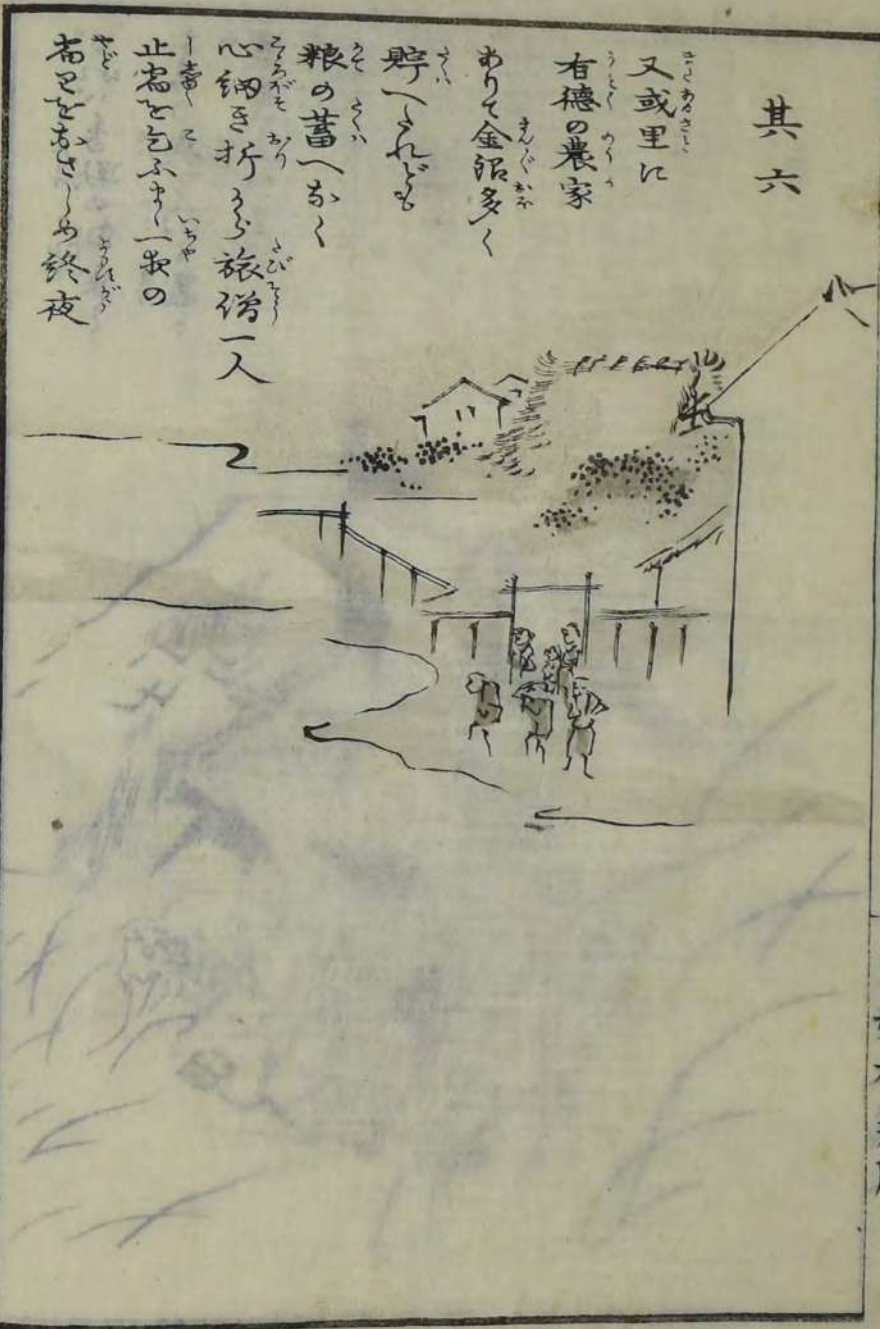 其六
又或里に
有徳の農家
ありて金銀多く
貯へたれども
粮の蓄へなく
心細き折から旅僧一人
止宿を乞ふまゝ一夜の
宿りをなさしめ終夜